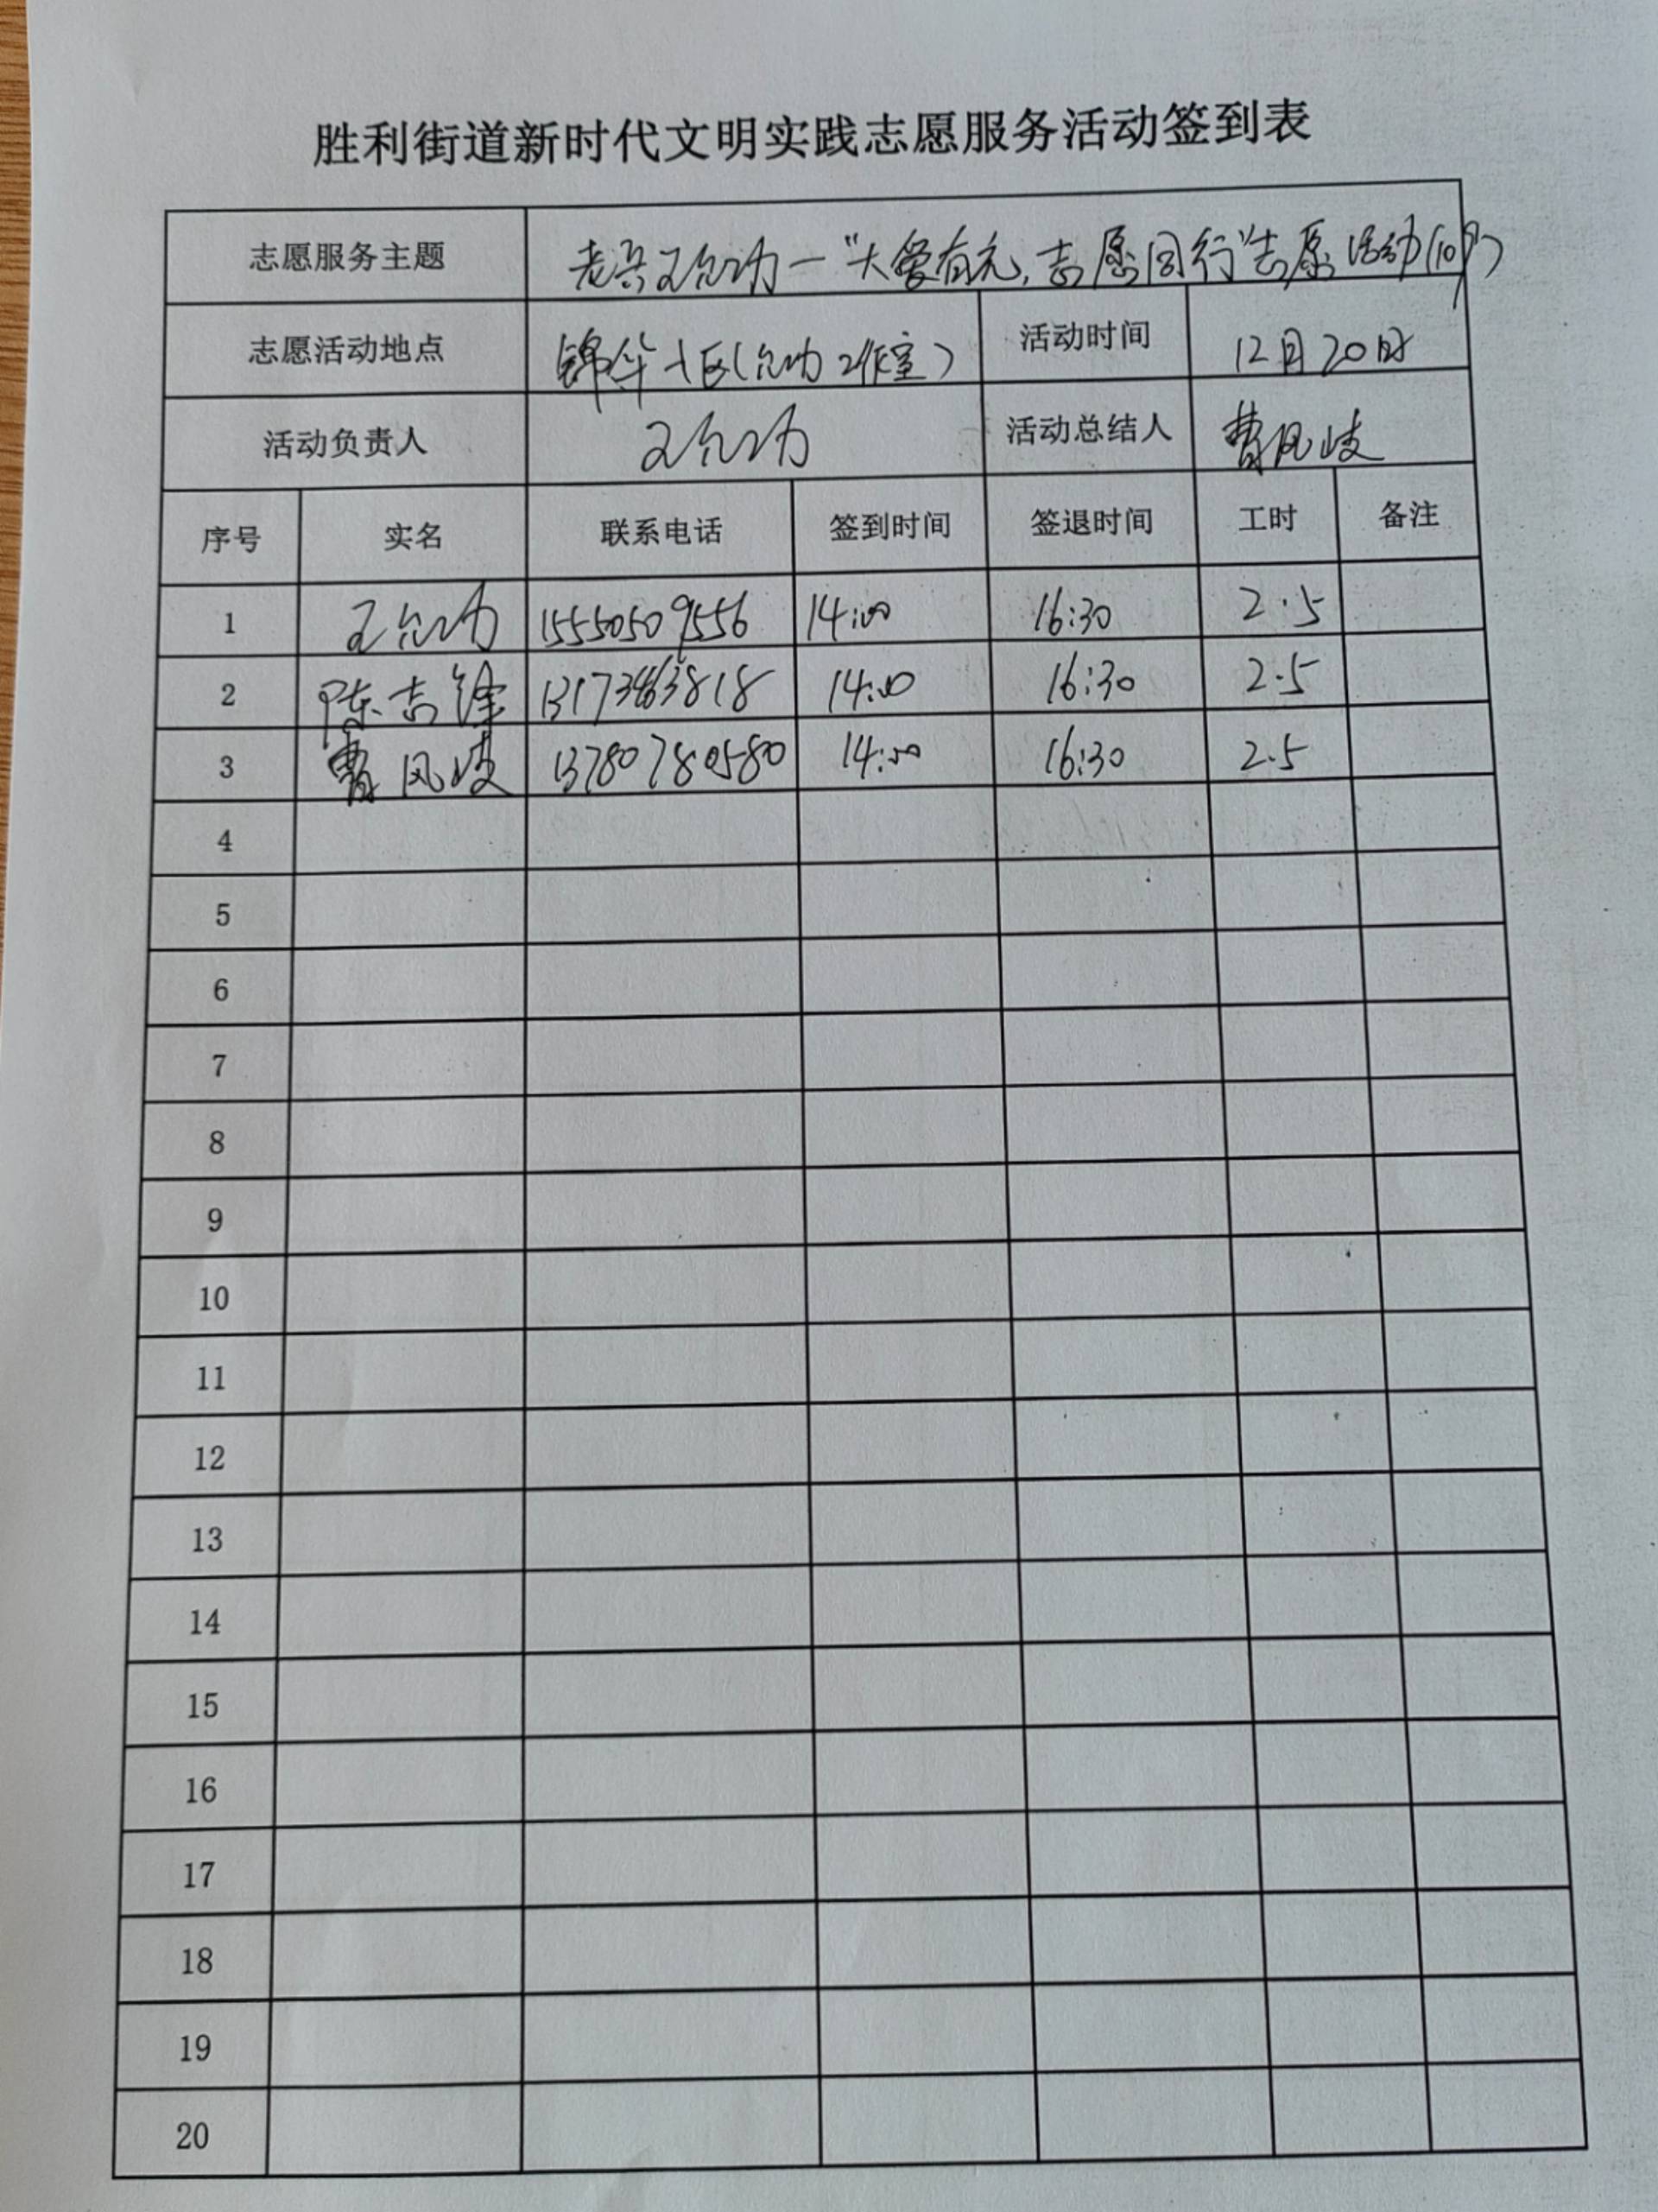 胜利街道新时代文明实践志愿服务活动签到表
志愿服务主题 老兵王允功一"大爱有元,志愿同行"志愿活动(109)
志愿活动地点 锦华一区(允功工作室) 活动时间 12月20日
活动负责人 王允功 活动总结人 曹风岐
序号 实名 联系电话 签到时间 签退时间 工时 备注
1 王允功 15550509556 14:00 16:30 2.5
2 陈志 14:00 16:30 2.5
3 曹风岐 13780780580 14:00 16:30 2.5
4
5
6
7
8
9
10
11
12
13
14
15
16
17
18
19
20